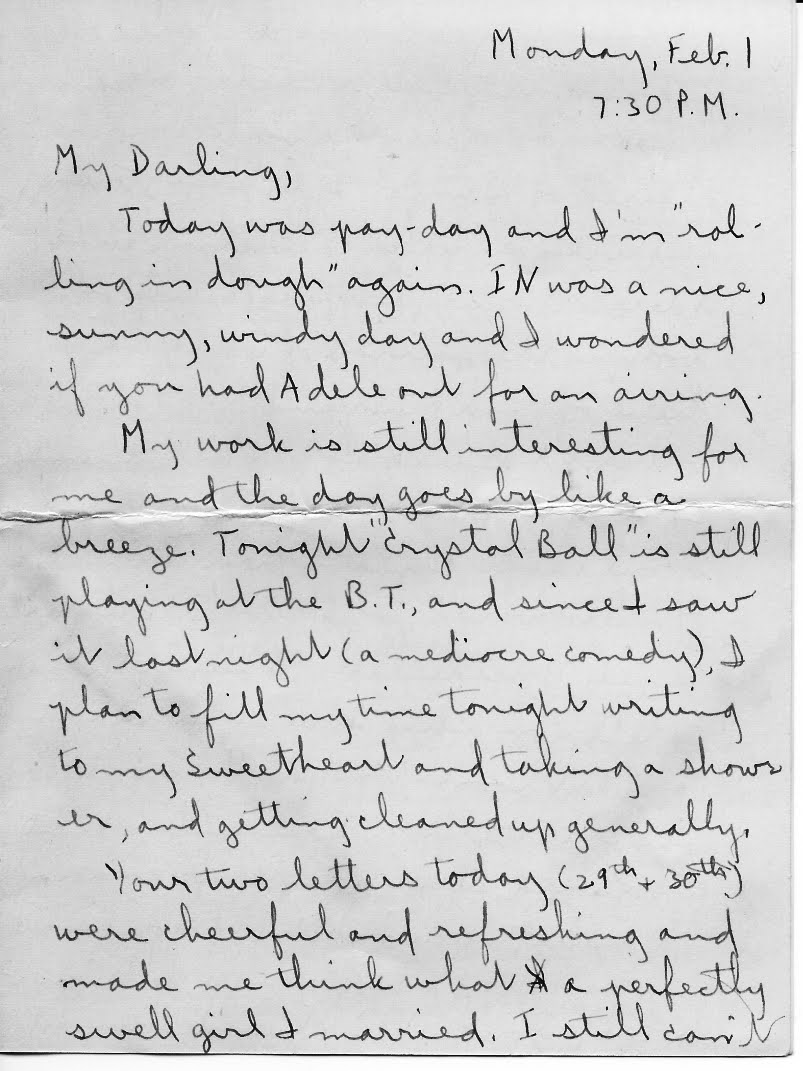 Monday, Feb. 1
7:30 P.M.
My Darling,
Today was pay-day and I'm "rol-
ling in dough" again. It was a nice,
sunny, windy day and I wondered
if you had Adele out for an airing.
My work is still interesting for
me and the day goes by like a
breeze. Tonight "Crystal Ball" is still
playing at the B.T., and since I saw
it last night (a mediocre comedy), I
plan to fill my time tonight writing
to my Sweetheart and taking a show-
er, and getting cleaned up generally.
Your two letters today (29th + 30th)
were cheerful and refreshing and
made me think what a perfectly
swell girl I married. I still can't